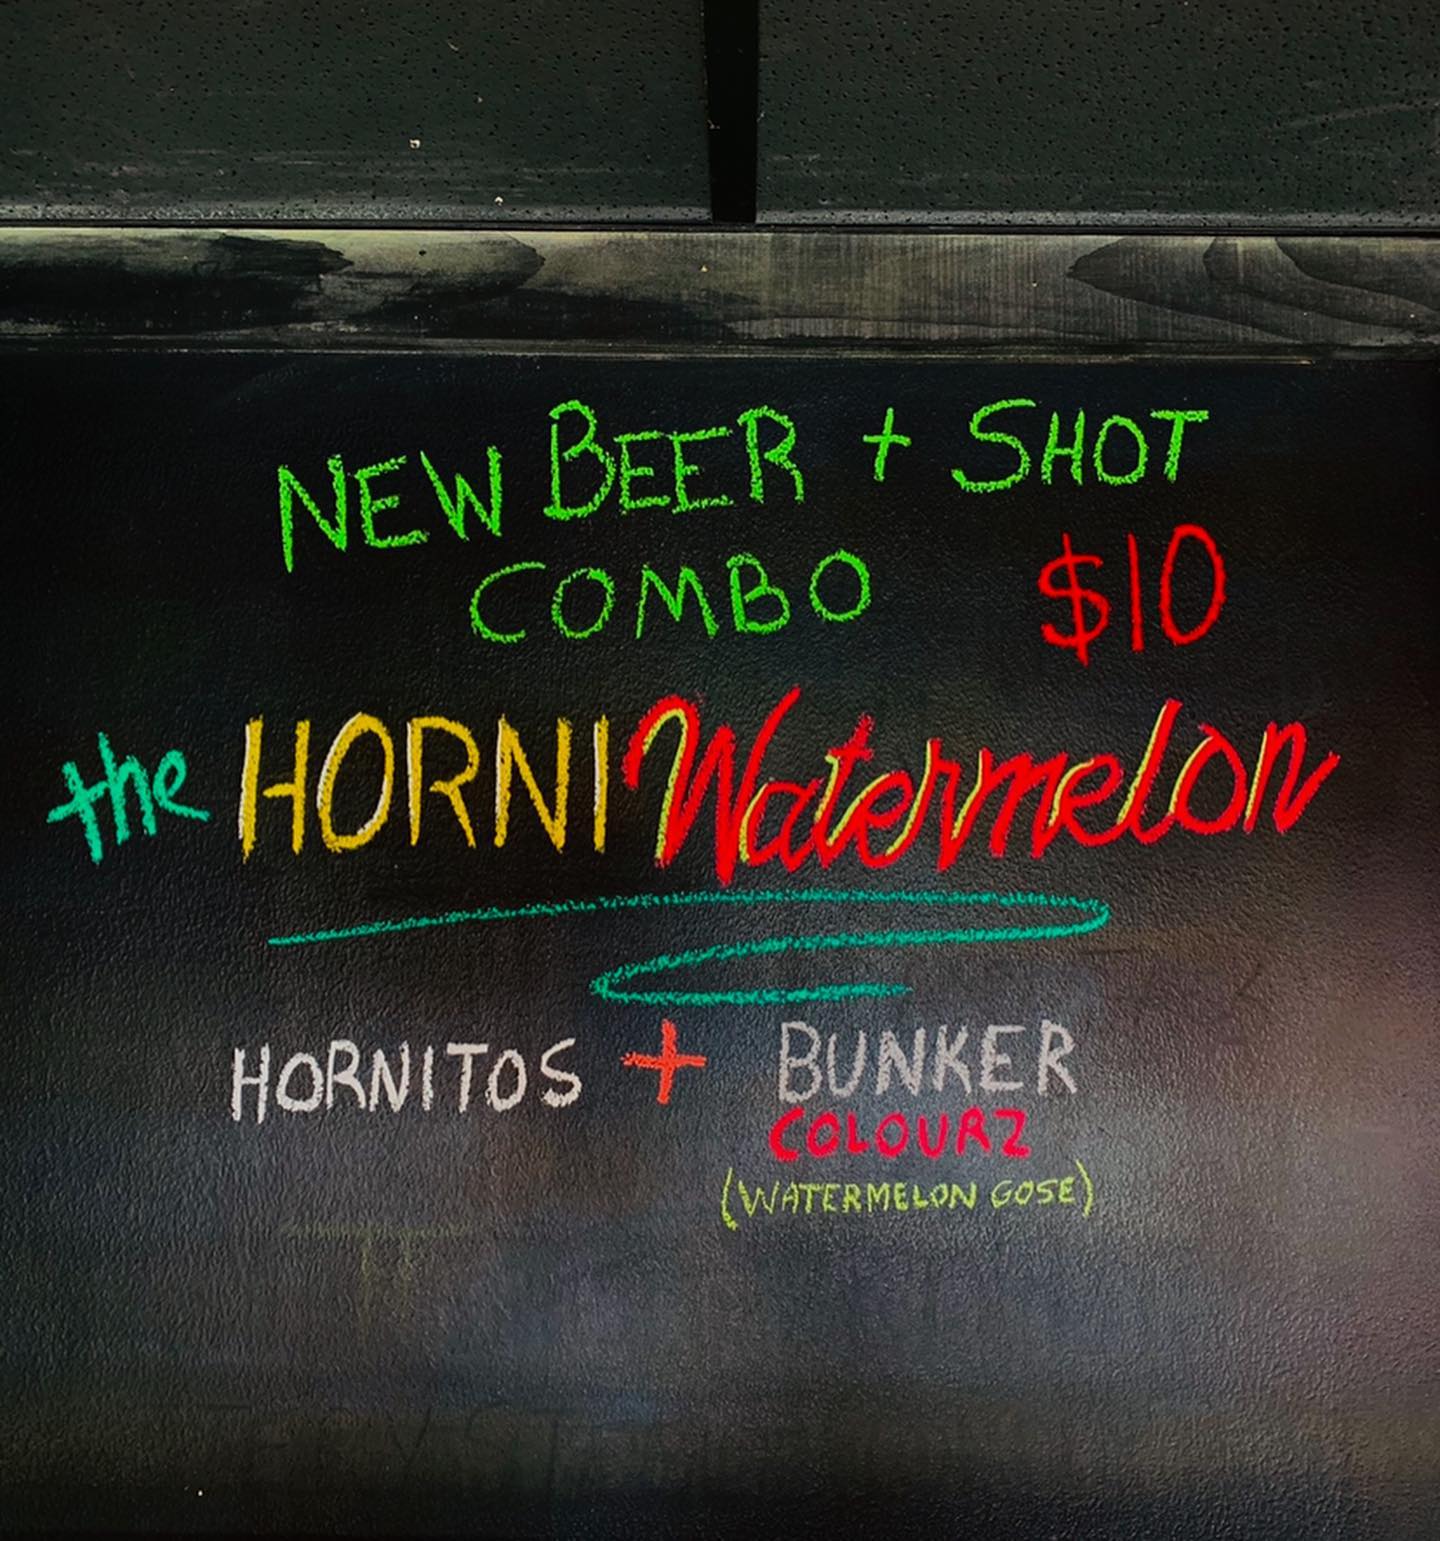 NEW BEER + SHOT
COMBO $10
the HORNIWatermelon
HORNITOS + BUNKER
COLOURZ
(WATERMELON GOSE)